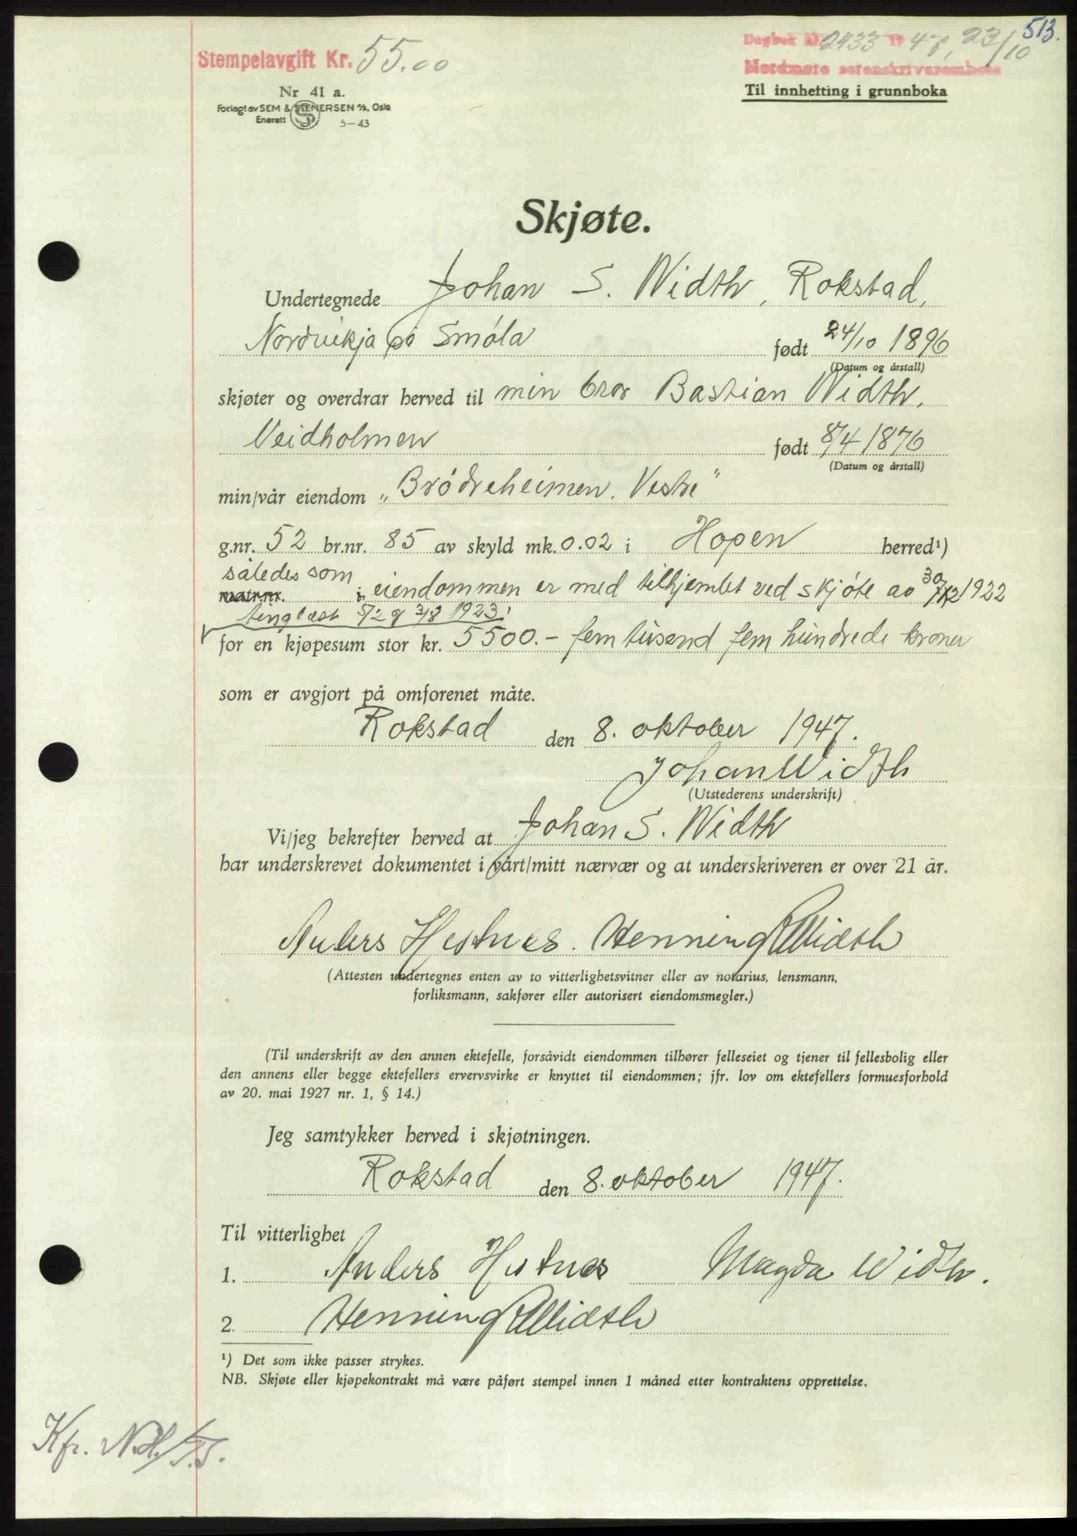 513.
Stempelavgift Kr. 55.00
Dagbok nr. 2433 1947, 23/10
Nordmøre sorenskrivarembete
Til innhefting i grunnboka
Nr 41 a.
Forlagt av SEM & STENERSEN A/S, Oslo
Enerett 5-43
Skjøte.
Undertegnede Johan S. Width, Rokstad,
Nordvikja på Smøla født 24/10 1896
(Datum og årstall)
skjøter og overdrar herved til min bror Bastian Width,
Veidholmen født 8/4 1876
(Datum og årstall)
min/vår eiendom „Brødreheimen, Vestre"
g.nr. 52 br.nr. 85 av skyld mk. 0.02 i Hopen herred¹)
således som
matr.nr. i eiendommen er med tilhjemlet ved skjøte av 30/12 1922
tinglæst 5/2 og 3/8 1923.
for en kjøpesum stor kr. 5500.- fem tusend fem hundrede kroner
som er avgjort på omforenet måte.
Rokstad den 8. oktober 1947.
Johan Width
(Utstederens underskrift)
Vi/jeg bekrefter herved at Johan S. Width
har underskrevet dokumentet i vårt/mitt nærvær og at underskriveren er over 21 år.
Anders Hestnes. Henning Width
(Attesten undertegnes enten av to vitterlighetsvitner eller av notarius, lensmann,
forliksmann, sakfører eller autorisert eiendomsmegler.)
(Til underskrift av den annen ektefelle, forsåvidt eiendommen tilhører felleseiet og tjener til fellesbolig eller
den annens eller begge ektefellers ervervsvirke er knyttet til eiendommen; jfr. lov om ektefellers formuesforhold
av 20. mai 1927 nr. 1, § 14.)
Jeg samtykker herved i skjøtningen.
Rokstad den 8. oktober 1947.
Til vitterlighet
1. Anders Hestnes Magda Width.
2. Henning Width
¹) Det som ikke passer strykes.
NB. Skjøte eller kjøpekontrakt må være påført stempel innen 1 måned etter kontraktens opprettelse.
Kfr. N.H./T.T.